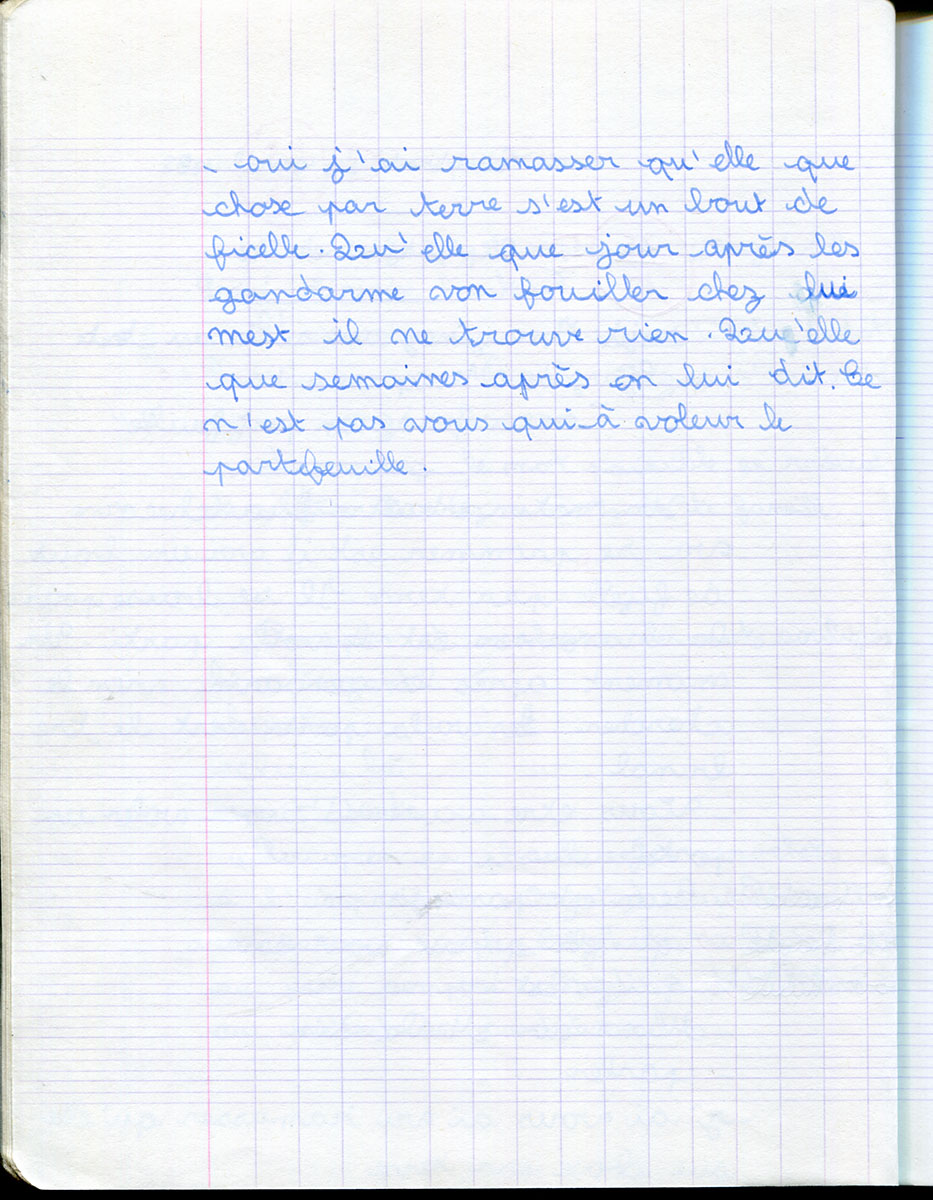 - oui j'ai ramasser qu'elle que
chose par terre s'est un bout de
ficelle. Qu'elle que jour après les
gandarme von fouiller chez lui
mest il ne trouve rien. Qu'elle
que semaines après on lui dit. Ce
n'est pas vous qui à voleur le
partfeuille.